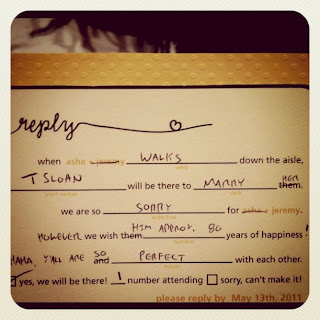 reply
when asha jeremy WALKS down the aisle,
verb
T SLOAN will be there to MARRY HER them.
your names verb
we are so SORRY for asha jeremy.
adjective
HOWEVER we wish them HIM APPROX. 80 years of happiness!
number
HAHA, Y'ALL ARE SO and PERFECT with each other.
noun
yes, we will be there! 1 number attending sorry, can't make it!
please reply by May 13th, 2011